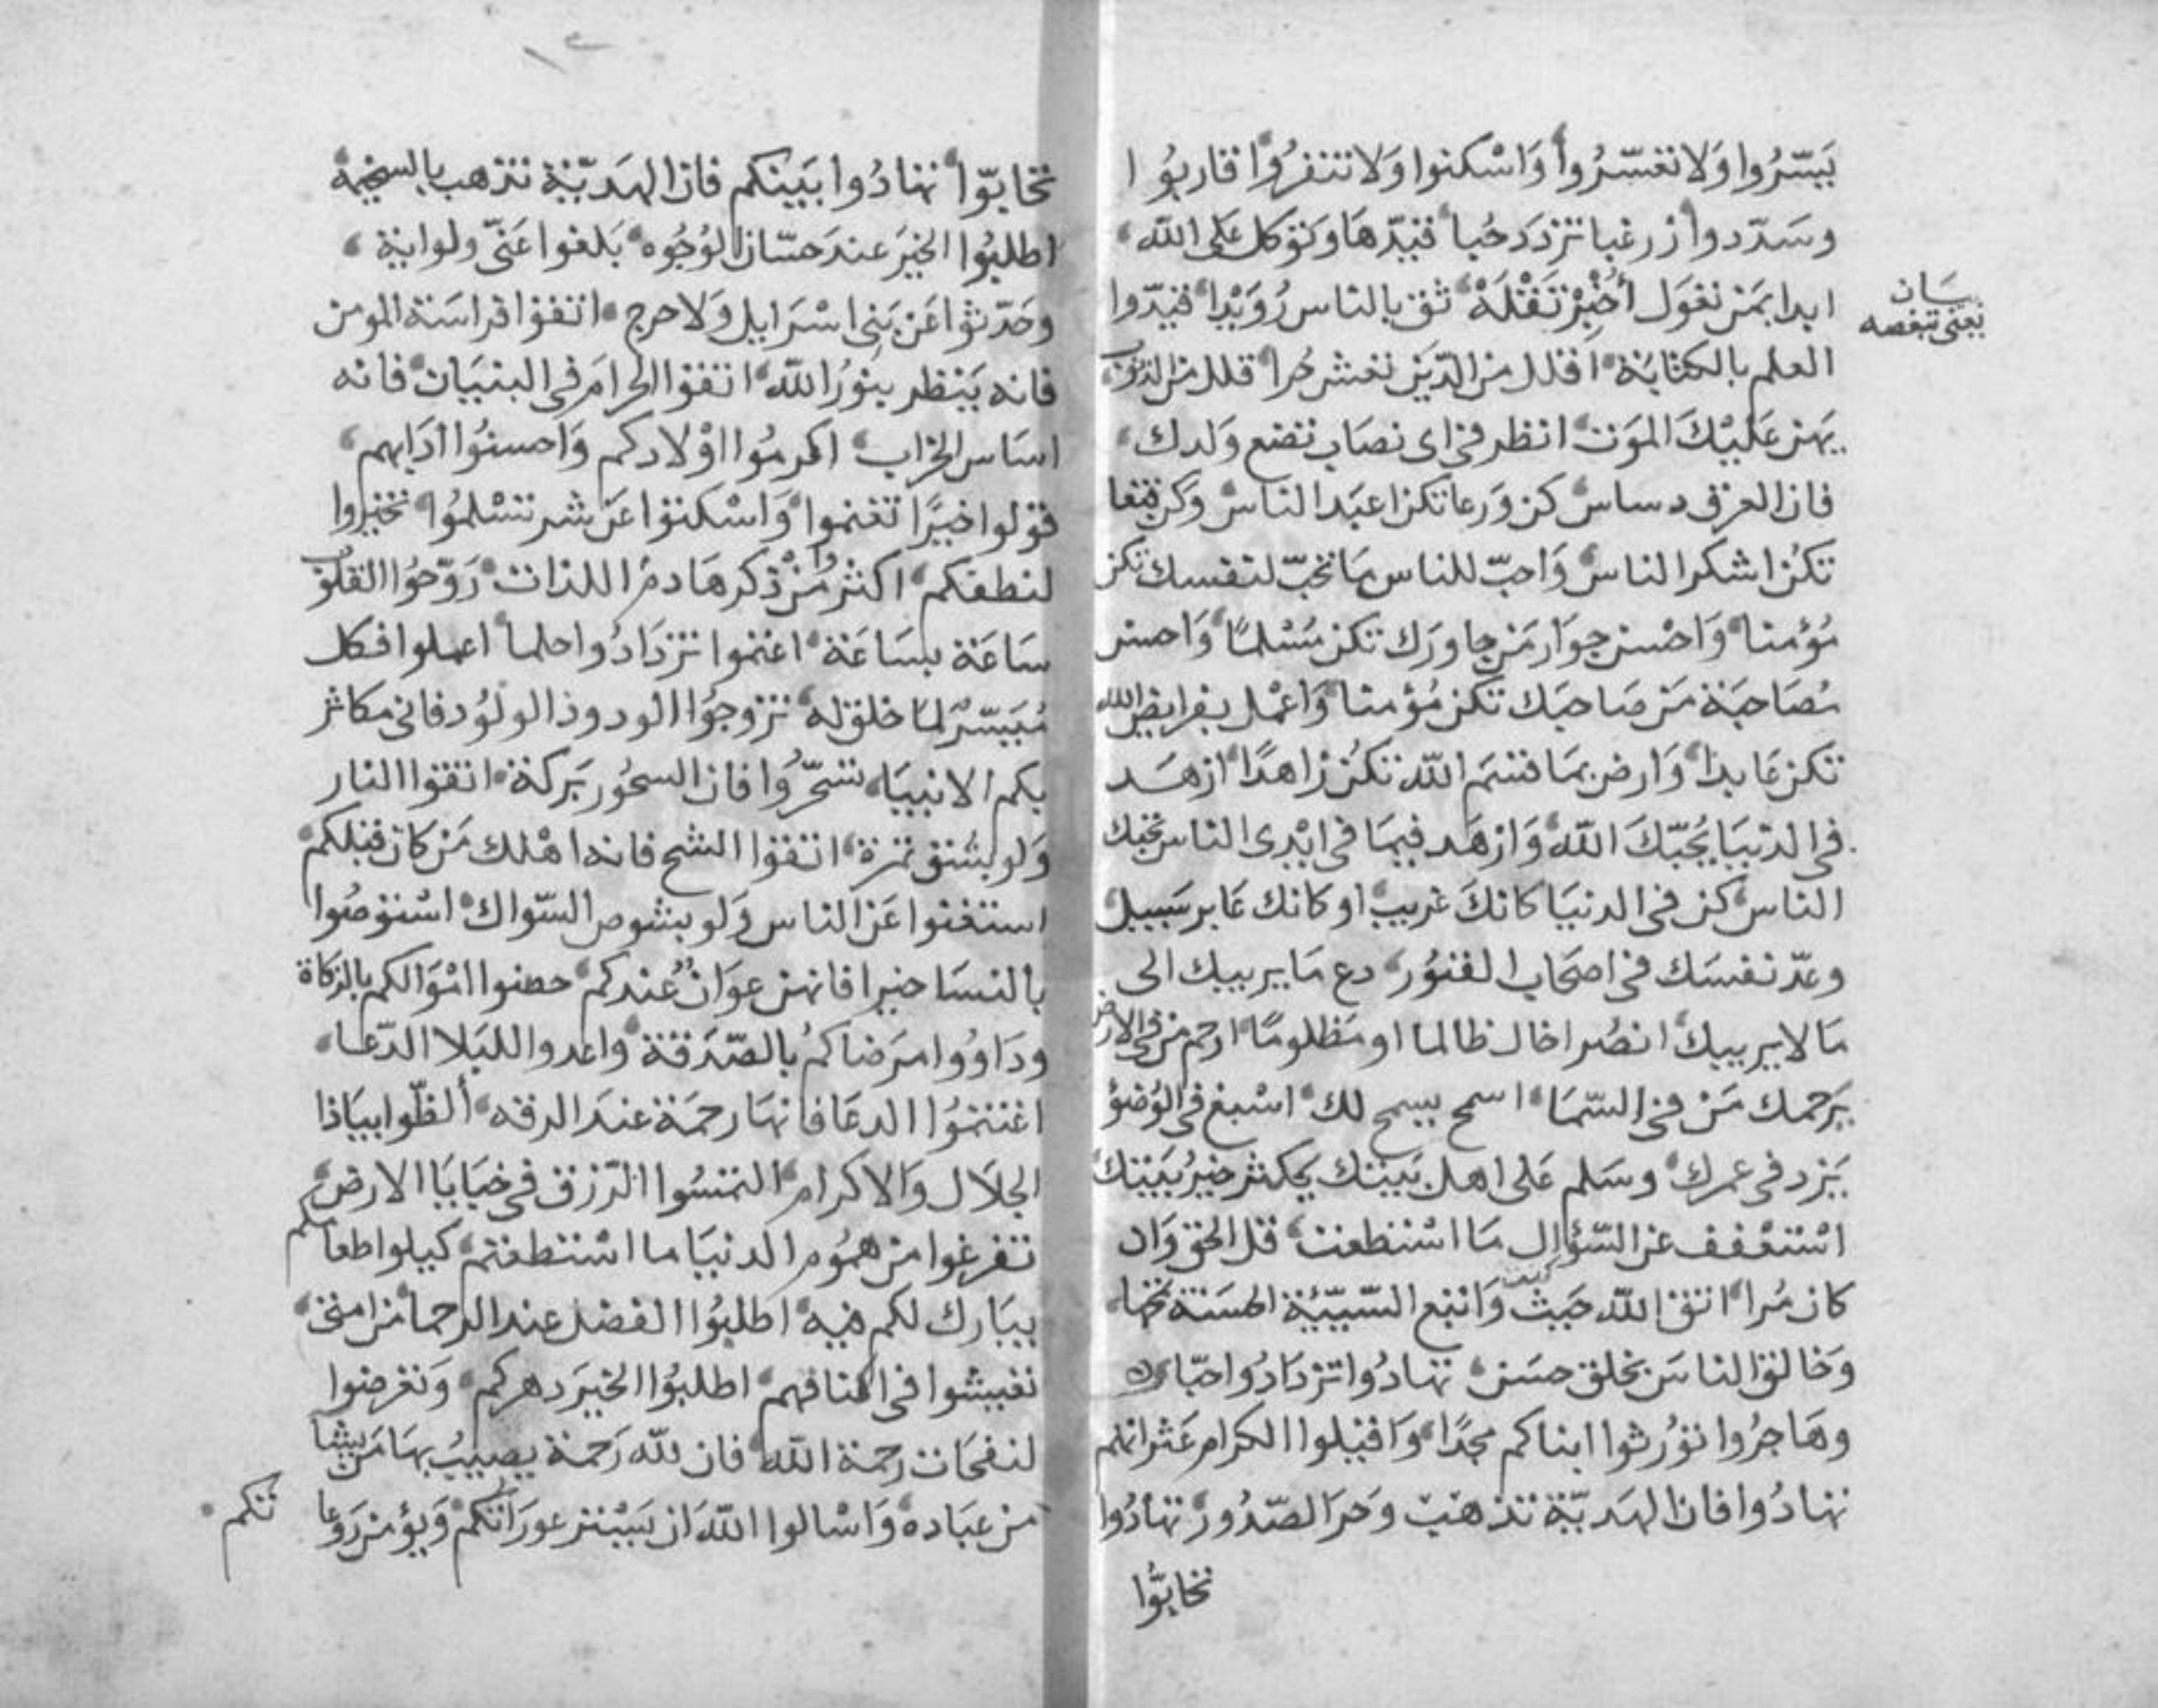 يَسّرُوا وَلا تعَسّرُوا وَاسْكنوا وَلا تنفرُوا قاربُوا
وسَدّدوا زر غبا تزدد حُبا قيّدها وَتوَكل عَلى الله
ابدا بمَن تعَول أُخْبُرْ تَقْلَهْ ثق بالناس رُوَيْدا قيدّوا
بيَان
يعنى تبغضه
العلم بالكتابَة اقلل من الدّيَن تعش حُرا قلل من الذنوب
يهن عَليْكَ الموَت انظر في اى نصَاب تضع وَلدك
فان العرق دساس كن وَرعا تكن اعبَد الناس وَكن قنعا
تكُن اشكر الناس وَاحبّ للناس مَا تحبّ لنفسك تكن
مُؤمنا وَاحْسن جوَار مَن جاورَك تكن مُسْلمًا وَاحسن
مُصَاحبَة مَن صَاحبَك تكن مُؤمنا وَاعْمل بفرايض الله
تكن عَابدا وَارض بمَا قسَم الله تكُن زاهدًا ازهَد
في الدنيَا يُحبّكَ الله وَازهَد فيمَا في ايْدى الناس يحبك
الناس كن في الدنيَا كانكَ غريب او كانك عَابر سَبيل
وعدّ نفسَك في اصحَاب القبُور دع مَا يريبك الى
مَا لا يريبك انصُر اخاك ظالما او مَظلومًا ارحم من في الارض
يَرحمك مَن في السّمَا اسمح يسمح لك اسْبغ في الوُضؤ
يَزد في عمرك وسَلم عَلى اهل بَيتك يَكثر خيرُ بَيتك
اسْتعْفف عن السّؤال مَا اسْتطعت قل الحق وَان
كان مُرا اتق الله حَيث كنت وَاتبع السّيّئة الحسَنة تمحها
وَخالق الناسَ بخلق حسَن تهادُوا تزدَادُوا حبّا
وهَاجرُوا توُرثوا ابناكم مجدًا وَاقيلوا الكرام عَثراتهم
تهادُوا فان الهَديّة تذهب وَحرَ الصّدُور تهادُوا
تحابّوا
تحابّوا تهادُوا بَينكم فان الهَديّة تذهب بالسخيمة
اطلبُوا الخيَر عند حسّان الوُجُوه بَلغوا عَنّى ولو اية
وحَدّثوا عَن بَنى اسْرَايل وَلا حرج اتقوا فراسَة المومن
فانه يَنظر بنوُر الله اتقوا الحرامَ في البنيَان فانه
اسَاس الخراب اكرمُوا اوْلادكم وَاحسنُوا ادَابهم
قوْلوا خيرًا تغنموا وَاسْكتوا عَن شر تسْلمُوا تخيروا
لنطفكم اكثرُ مُنْ ذكر هَادم اللذات رَوّحُوا القلوب
سَاعَة بسَاعَة اغتموا تزدَادُوا حلما اعملوا فكل
مُيَسّرٌ لمَا خلق له تزوجوُا الودود الولوُد فانى مكاثر
بكم الانبيَا تسَحّرُوا فان السحُور بَركة اتقوا النار
وَلو بشق تمرة اتقوا الشح فانه اهْلك مَن كان قبلكم
استغنوا عَن الناس وَلو بشوص السّواك اسْتوصُوا
بالنسَا خيرا فانهن عوَانٌ عندكم حصنوا امْوَالكم بالزكاة
ودَاوُوا مرَضاكمُ بالصّدَقة واعدوا للبَلا الدّعا
اغتنمُوا الدعَا فانهَا رحمَة عندَ الرقه ألظّوا بيَاذا
الجلَال وَالاكرام التمسُوا الرّزق في خبَايَا الارض
تفرغوا من همُوم الدنيَا ما اسْتطعتم كيلوا طعامكم
يبَارك لكم فيه اطلبُوا الفضل عند الرحما من امتى
تعيشوا في اكنافهم اطلبُوا الخيَر دهركم وَتعَرضوا
لنفحَات رحمة الله فان لله رَحمة يصيبُ بهَا مَن يشا
من عبَاده وَاسْالوا الله اَن يَسْتر عورَاتكم وَيؤمن رَوعا
تكم